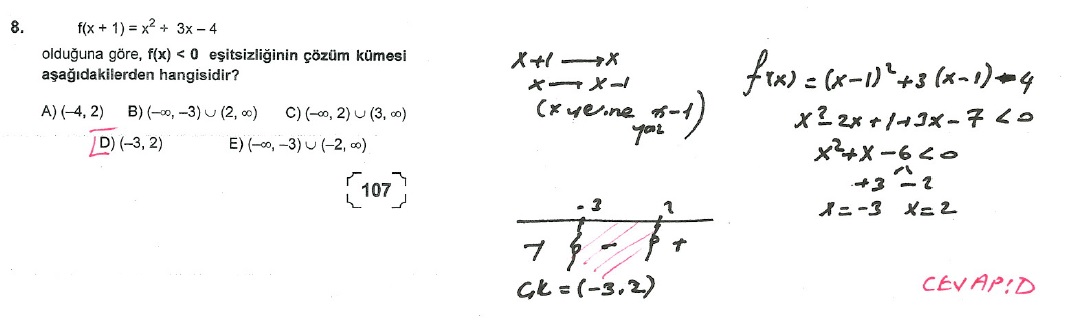 8. f(x + 1) = x² + 3x – 4
olduğuna göre, f(x) < 0 eşitsizliğinin çözüm kümesi
aşağıdakilerden hangisidir?
A) (–4, 2) B) (–∞, –3) ∪ (2, ∞) C) (–∞, 2) ∪ (3, ∞)
D) (–3, 2) E) (–∞, –3) ∪ (–2, ∞)
107
x+1 → x
x → x–1
(x yerine x–1)
yaz
-3 2
+ - +
ÇK = (–3,2)
f(x) = (x–1)² + 3(x–1) – 4
x² – 2x + 1 + 3x – 7 < 0
x² + x – 6 < 0
+3 –2
x = –3 x = 2
CEVAP:D